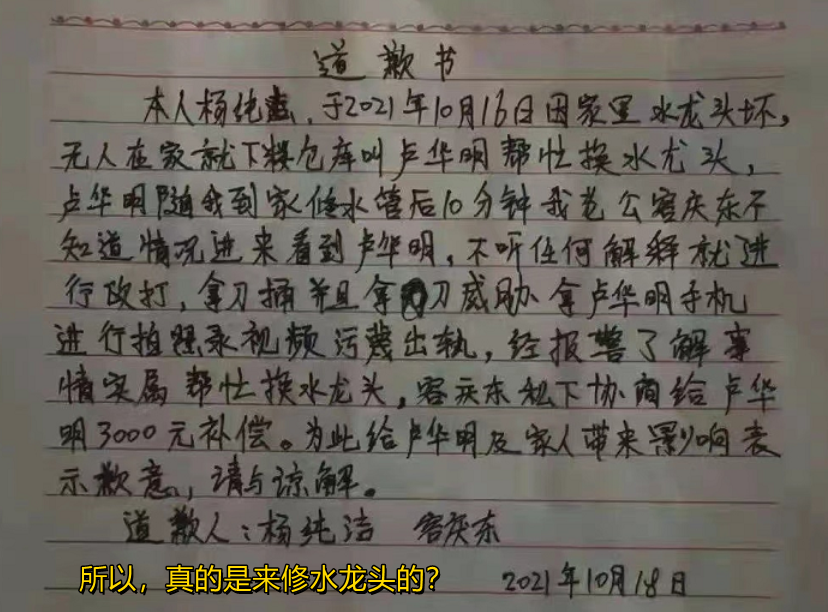 道歉书
本人杨纯洁,于2021年10月16日因家里水龙头坏,
无人在家就下楼仓库叫卢华明帮忙换水龙头,
卢华明随我到家修水管后10分钟我老公容庆东不
知道情况进来看到卢华明,不听任何解释就进
行改打,拿刀捅并且拿刀威胁拿卢华明手机
进行拍照录视频污蔑出轨,经报警了解事
情实属帮忙换水龙头,容庆东私下协商给卢华
明3000元补偿。为此给卢华明及家人带来影响表
示歉意,请与谅解。
道歉人:杨纯洁 容庆东
所以,真的是来修水龙头的?
2021年10月18日